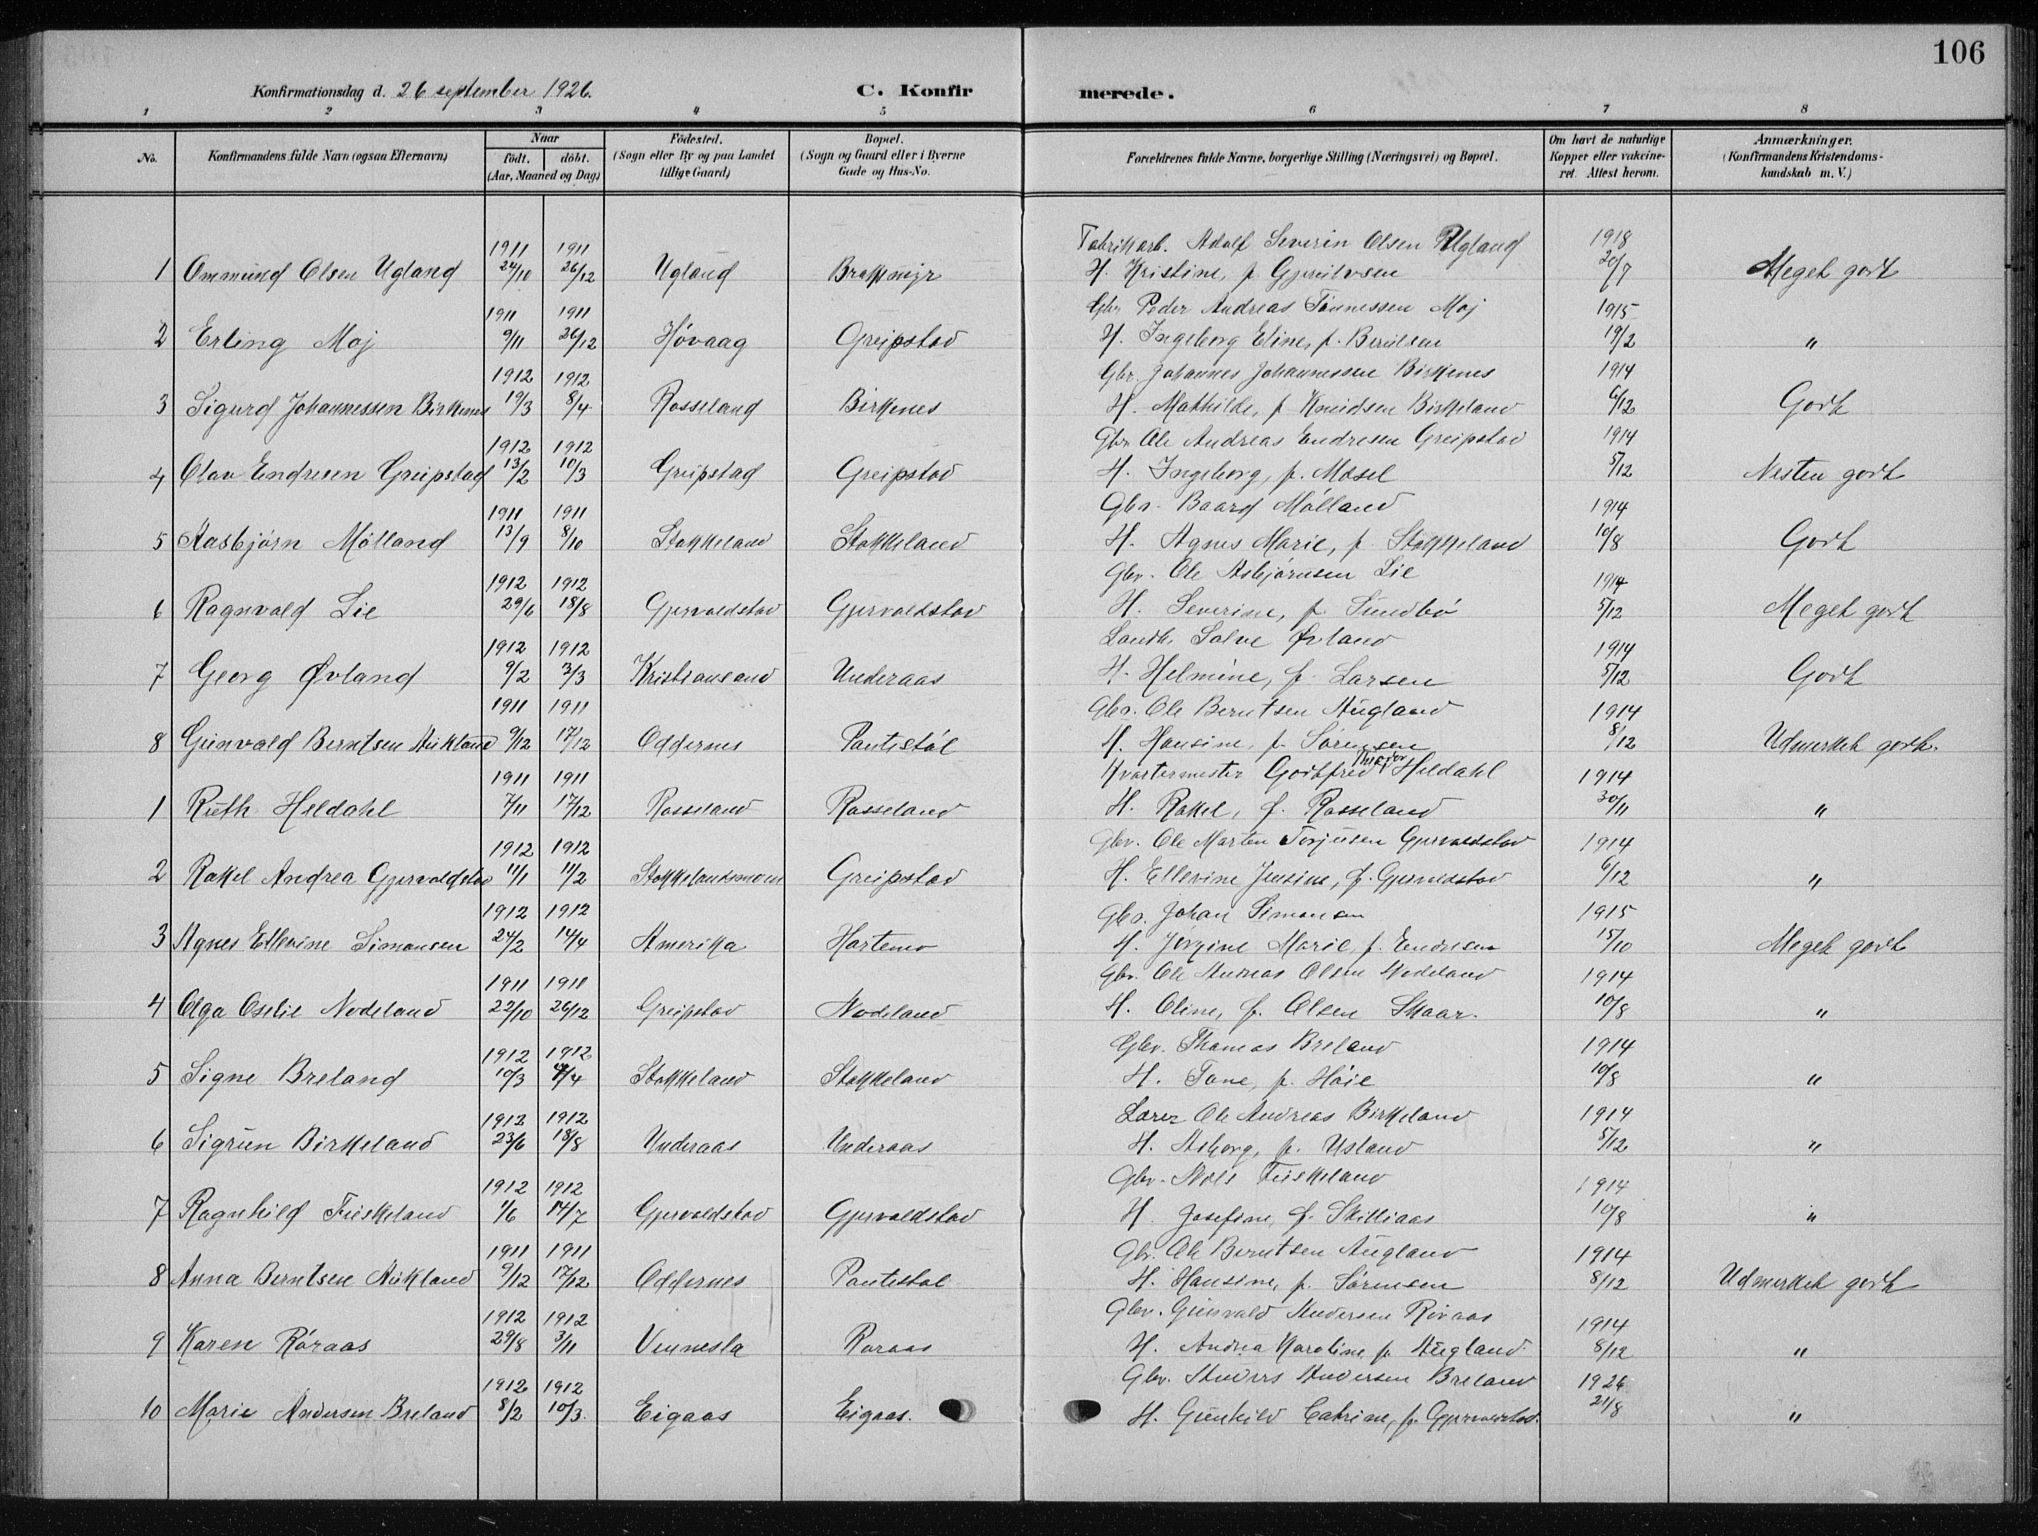 106
Konfirmationsdag d. 26 september 1926. C. Konfirmerede.
1 2 3 4 5 6 7 8
No. Konfirmandens fulde Navn (ogsaa Efternavn) Naar födt. döbt. (Aar, Maaned og Dag) Födested. (Sogn eller By og paa Landet tillige Gaard) Bopæl. (Sogn og Gaard eller i Byerne Gade og Hus-No. Forældrenes fulde Navne, borgerlige Stilling (Næringsvei) og Bopæl. Om havt de naturlige Kopper eller vakcineret. Attest herom. Anmærkninger. (Konfirmandens Kristendomskundskab m. V.)
1911 1911 Fabrikarb. Adolf Severin Olsen Ugland 1918
1 Ommund Olsen Ugland 24/10 26/12 Ugland Brakmyr H. Kristine, f. 20/7 Meget godt
1911 1911 Gbr. Peder Andreas Tønnessen Moj 1915
2 Erling Moj 9/11 26/12 Høvaag Greipstad H. Ingeborg Eline, f. Berntsen 19/2 "
1912 1912 Gbr. Johannes Johannessen Birkenes 1914
3 Sigurd Johannessen Birkenes 19/3 8/4 Rosseland Birkenes H. Mathilde, f. Knudsen Birkeland 6/12 Godt
1912 1912 Gbr. Ole Andreas Endresen Greipstad 1914
4 Olav Endresen Greipstad 13/2 10/3 Greipstad Greipstad H. Ingeborg, f. Mosel 5/12 Nesten godt
1911 1911 Gbr. Baard Mölland 1914
5 Aasbjørn Mölland 13/9 8/10 Stokkeland Stokkeland H. Agnes Marie, f. Stokkeland 10/8 Godt
1912 1912 Gbr. Ole Asbjørnsen Lie 1914
6 Ragnvald Lie 29/6 18/8 Gjervoldstad Gjervoldstad H. Severine, f. Sundbö 5/12 Meget godt
1912 1912 Landh. Salve Øvland 1914
7 Georg Øvland 9/2 3/3 Kristiansand Underaas H. Helmine, f. Larsen 5/12 Godt
1911 1911 Gbr. Ole Berntsen Augland 1914
8 Gunvald Berntsen Aukland 9/12 17/12 Oddernes Pantestöl H. Hansine, f. Sørensen 8/12 Udmerket godt.
1911 1911 Kvartermester Godtfred Heldahl 1914
1 Ruth Heldahl 7/11 17/12 Rosseland Rosseland H. Rakel, f. Rosseland 30/11 "
1912 1912 Gbr. Ole Marten Torjusen Gjervoldstad 1914
2 Rakel Andrea Gjervoldstad 11/1 11/2 Stokkelandsmoen Greipstad H. Ellevine Jensine, f. Gjervoldstad 6/12 "
1912 1912 Gbr. Johan Simonsen 1915
3 Agnes Ellevine Simonsen 24/2 14/4 Amerika Hortemo H. Jørgine Marie, f. Endresen 15/10 Meget godt
1911 1911 Gbr. Ole Andreas Olsen Nodeland 1914
4 Olga Oselie Nodeland 22/10 26/12 Greipstad Nodeland H. Oline, f. Olsen Skaar. 10/8 "
1912 1912 Gbr. Thomas Breland 1914
5 Signe Breland 10/3 /4 Stokkeland Stokkeland H. Tone, f. Höie 10/8 "
1912 1912 Lærer Ole Andreas Birkeland 1914
6 Sigrun Birkeland 23/6 18/8 Underaas Underaas H. Asborg, f. Usland 5/12 "
1912 1912 Gbr. Nils Fuskeland 1914
7 Ragnhild Fuskeland 1/6 14/7 Gjervoldstad Gjervoldstad H. Josefine, f. Skilliaas 10/8 "
1911 1911 Gbr. Ole Berntsen Augland 1914
8 Anna Berntsen Aukland 9/12 17/12 Oddernes Pantestøl H. Hansine, f. Sørensen 8/12 Udmerket godt
1912 1912 Gbr. Gunvald Andersen Røraas 1914
9 Karen Røraas 29/8 3/11 Vennesla Røraas H. Andrea Karoline, f. Augland 8/12 "
1912 1912 Gbr. Anders Andersen Breland 1926
10 Marie Andersen Breland 8/2 10/3. Eigaas Eigaas. H. Gunhild Catrine, f. Gjervoldstad. 21/8 "